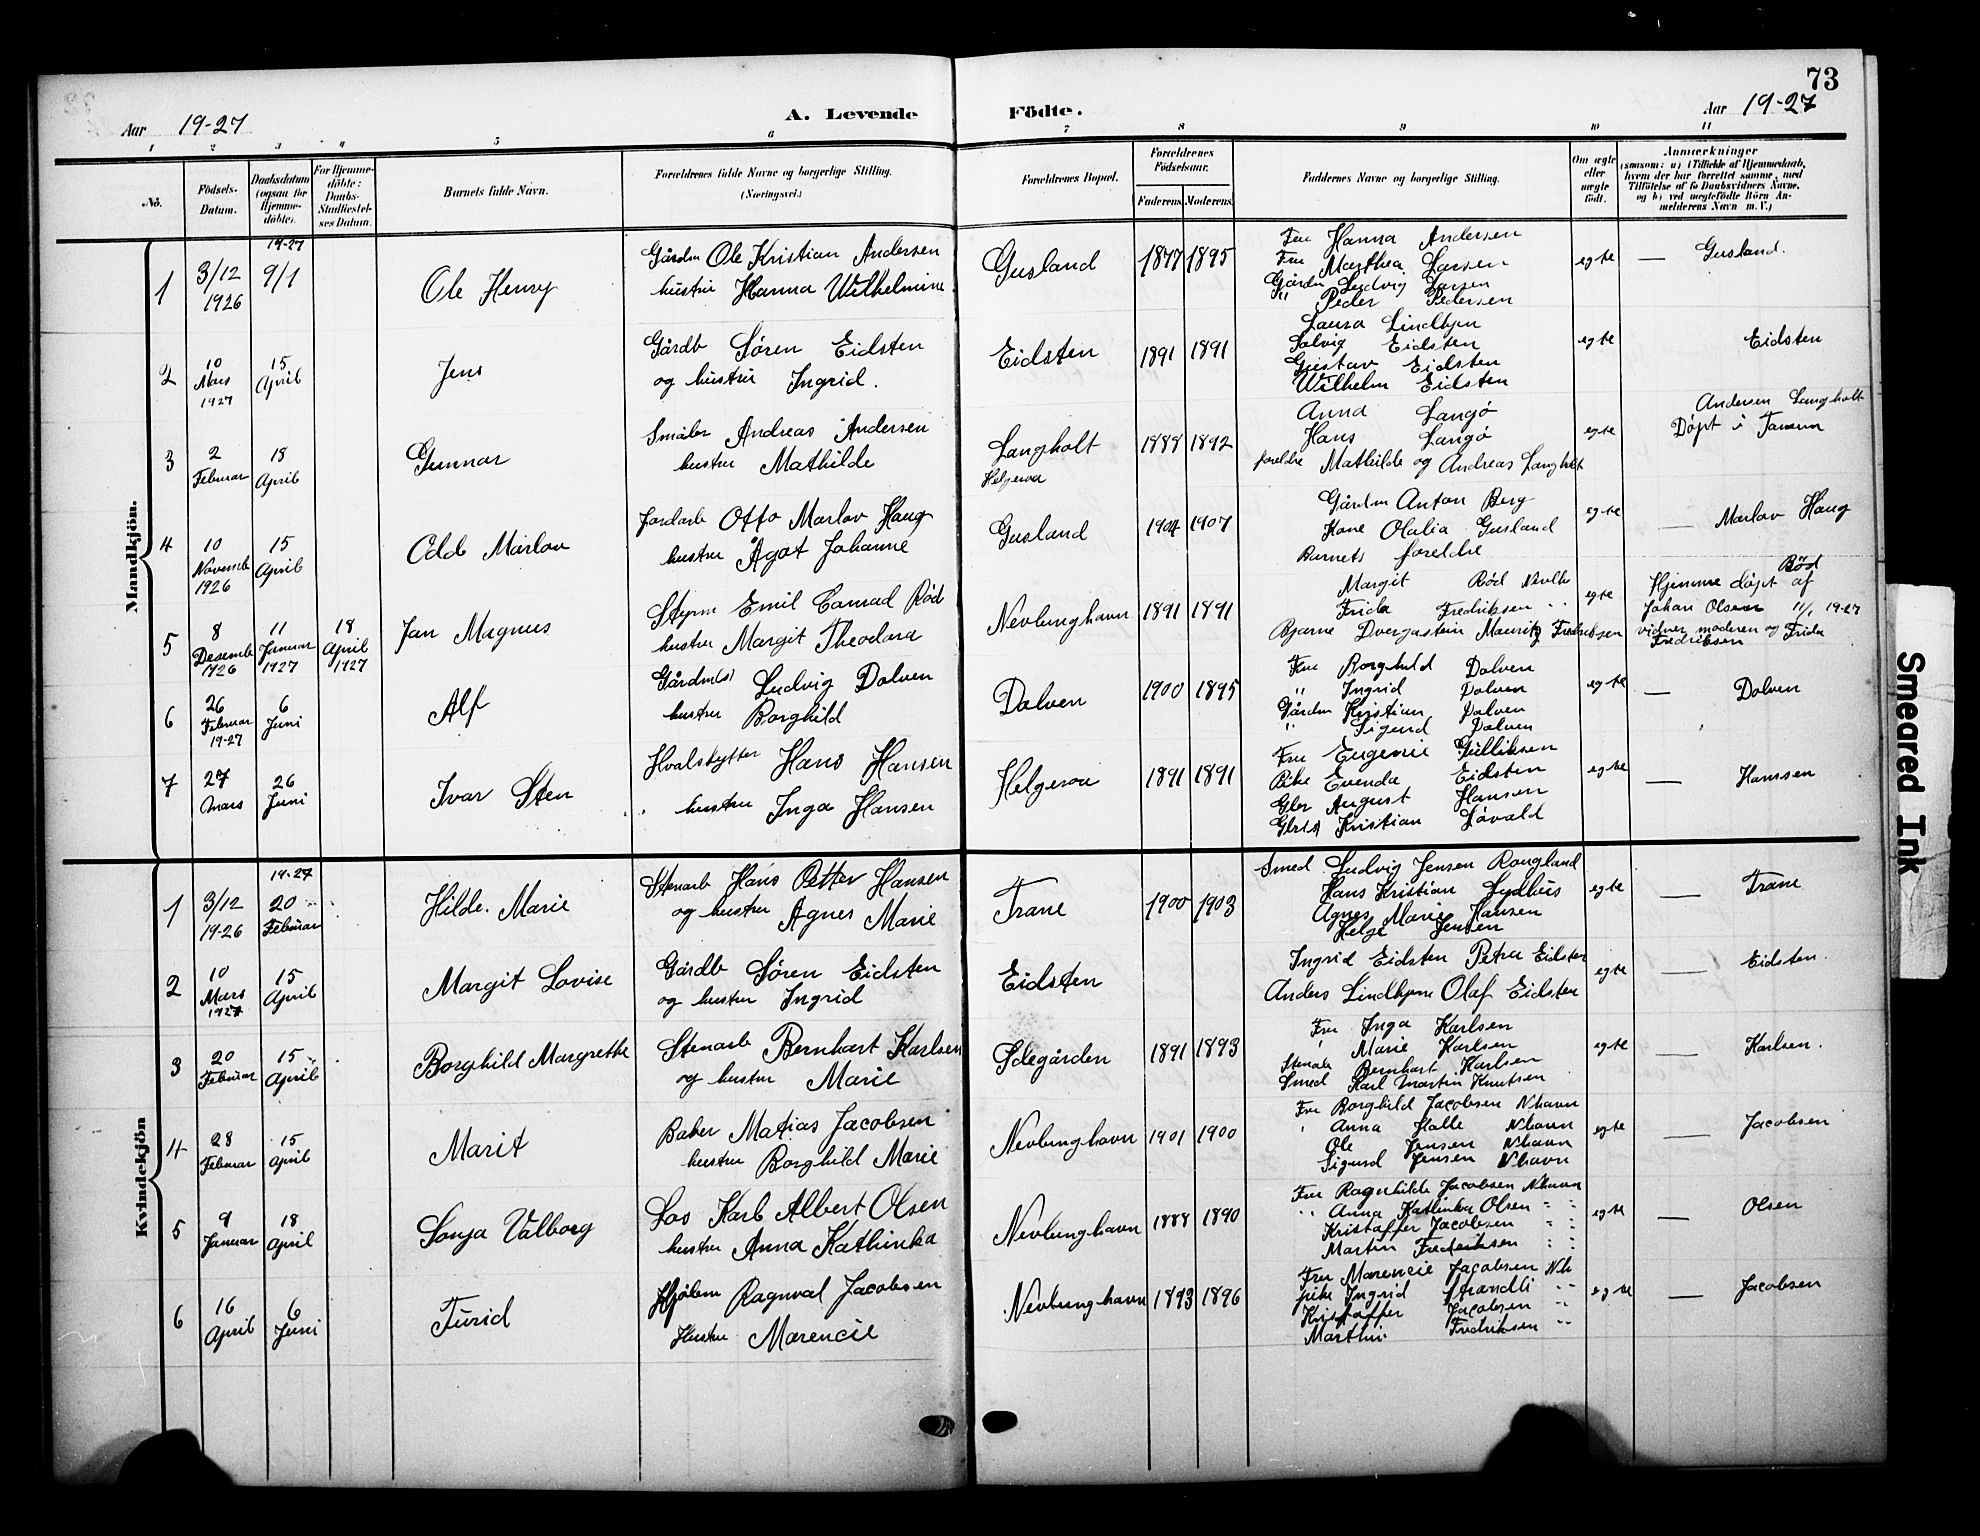 73
Aar 19-27
A. Levende Födte.
Aar 19-27
1 2 3 4 5 6 7 8 9 10 11
No.
Födsels-Datum.
Daabsdatum (ogsaa for Hjemme-döbte).
For Hjemme-döbte: Daabs-Stadfæstel-ses Datum.
Barnets fulde Navn.
Forældrenes fulde Navne og borgerlige Stilling. (Næringsvei.)
Forældrenes Bopæl.
Forældrenes Födselsaar.
Faderens. Moderens.
Faddernes Navne og borgerlige Stilling.
Om ægte eller uægte födt.
Anmærkninger
(saasom: a) i Tilfælde af Hjemmedaab, hvem der har forrettet samme, med Tilföielse af to Daabsvidners Navne, og b) ved uægtefödte Börn An-melderens Navn m. V.)
Mandkjön.
1 3/12 1926 19-27 9/1 Ole Henry
Gårdm Ole Kristian Andersen
hustru Hanna Wilhelmine
Gusland 1877 1895
Fru Hanna Andersen
Fru Marthea Larsen
Gårdm Ludvig Larsen
" Peder Pedersen
egte — Gusland.
2 10 Mars 1927 15 April Jens
Gårdb Søren Eidsten
og hustru Ingrid.
Eidsten 1891 1891
Laura Lindhjem
Solvig Eidsten
Gustav Eidsten
Wilhelm Eidsten
egte Eidsten
3 2 Februar 18 April Gunnar
Småbr Andreas Andersen
hustru Mathilde
Langholt
Helgeroa
1888 1892
Anna Langø
Hans Langø
foreldre Mathilde og Andreas Langholt
egte Andersen Langholt
Døpt i Tanum
4 10 Novemb 1926 15 April Odd Marlov
Jordarb Otto Marlov Haug
hustru Ågot Johanne
Gusland 1904 1907
Gårdm Anton Berg
Kone Olalia Gusland
Barnets foreldre
egte — Marlov Haug
5 8 Desemb 1926 11 Januar 1927 18 April 1927 Jan Magnus
Styrm Emil Conrad Rød
hustru Margit Theodora
Nevlunghavn 1891 1891
Margit Rød Nevlh
Frida Fredriksen " "
Bjarne Dvergastein Mauritz Fredriksen
egte Rød
Hjemme døpt af
Johan Olsen 11/1 19-27
vidner moderen og Frida
Fredriksen
6 26 Februar 19-27 6 Juni Alf
Gårdm(s) Ludvig Dolven
hustru Borghild
Dolven 1900 1895
Fru Borghild Dolven
" Ingrid Dolven
Gårdm Kristian Dolven
" Sigurd Dolven
egte — Dolven
7 27 Mars 26 Juni Ivar Sten
Hvalskytter Hans Hansen
hustru Inga Hansen
Helgeroa 1891 1891
Fru Eugenie Gulliksen
Pike Evenda Eidsten
Gbr August Hansen
Kristian Løvald
egte — Hanssen
Kvindekjön
1 3/12 19-26 19-27 20 Februar Hilde. Marie
Stenarb Hans Petter Hansen
og hustru Agnes Marie
Trane 1900 1903
Smed Ludvig Jensen Rougland
Hans Kristian Lydhus
Agnes Marie Hansen
Helge Jensen
egte — Trane
2 10 Mars 1927 15 April Margit Lovise
Gårdb Søren Eidsten
og hustru Ingrid
Eidsten
Ingrid Eidsten Petra Eidsten
Anders Lindhjem Olaf Eidsten
egte — Eidsten.
3 20 Februar 15 April Borghild Margrethe
Stenarb Bernhart Karlsen
og hustru Marie
Ødegården 1891 1893
Fru Inga Karlsen
" Marie Karlsen
Stenab Bernhart Karlsen
Smed Karl Martin Knutsen
egte — Karlsen.
4 28 Februar 15 April Marit
Baker Matias Jacobsen
hustru Borghild Marie
Nevlunghavn 1901 1900
Fru Borghild Jacobsen N.havn
" Anna Halle N havn
Ole Jensen N havn
Sigurd Jensen N havn
egte — Jacobsen
5 9 Januar 18 April Sonja Valborg
Los Karl Albert Olsen
hustru Anna Kathinka
Nevlunghavn 1888 1890
Fru Ragnhilde Jacobsen N havn
" Anna Kathinka Olsen " "
Kristoffer Jacobsen " "
Martin Fredriksen " "
egte — Olsen
6 16 April 6 Juni Turid
Ragnval Jacobsen
Hustru Marencie
Nevlunghavn 1893 1896
Fru Marencie Jacobsen N.h
pike Ingrid Strandli "
Kristoffer Jacobsen "
Marthin Fredriksen "
egte — Jacobsen
Smeared Ink